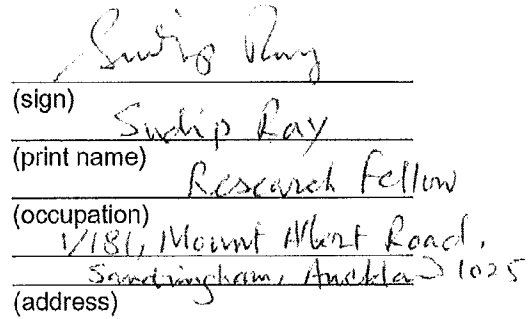 Sudip Ray
(sign)
Sudip Ray
(print name)
Research Fellow
(occupation)
1/181, Mount Albert Road,
Sandringham, Auckland 1025
(address)